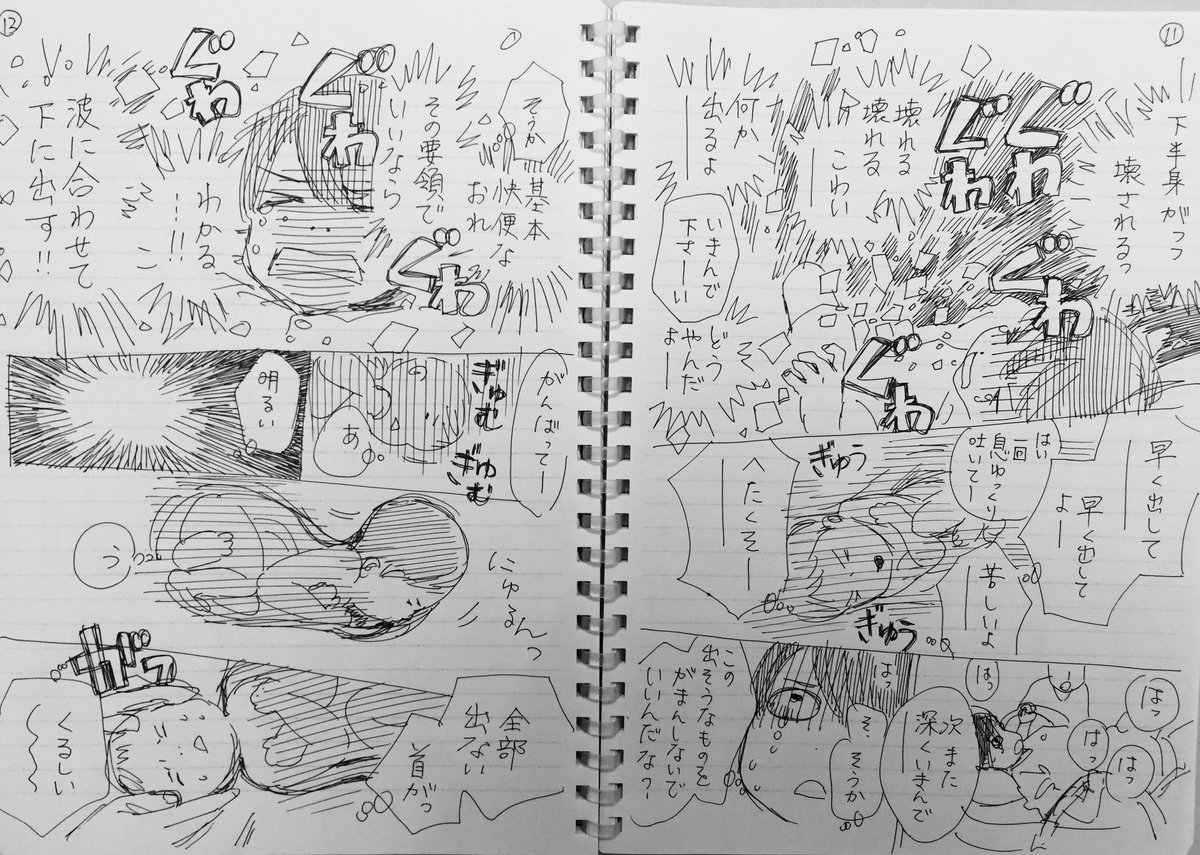 11
下半身がっっ
壊されるっ
ぐわ
ぐわ
ぐわ
ぐわ
壊れる
壊れる
こわい
何か
出るよ
いきんで
下さーい
どう
やんだ
よー
早く出して
早く出して
よー
はい
一回
息ゆっくり
吐いてー
苦しいよ
ぎゅう
ぎゅう
へたくそー
はっ
はっ
はっ
はっ
次また
深くいきんで
はっ
そ、
そうか
この
出そうなものを
がまんしないで
いいんだな?
12
そうか
基本
快便な
おれ
その要領で
いいなら
わかる
…!!
波に合わせて
下に出す!!
ぐわ
ぐわ
ぐわ
がんばってー
ぎゅむ
ぎゅむ
あ
明るい
にゅるんっ
う
全部
出ない
首がっ
ガッ
くるしい